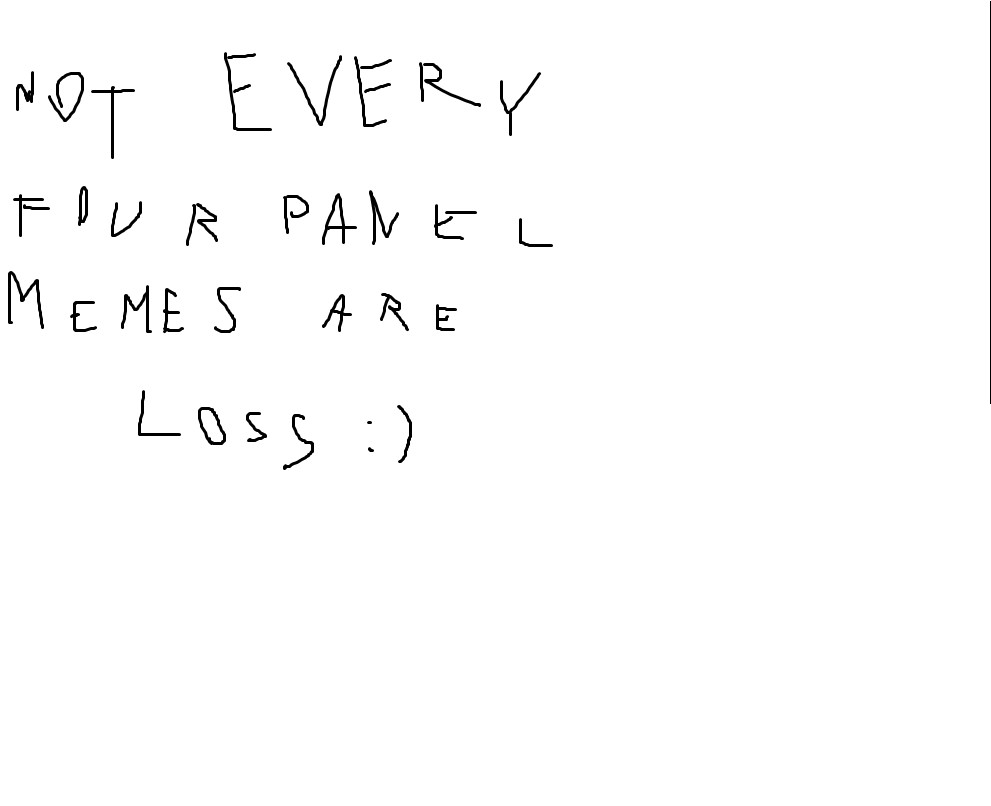 NOT EVERY
FOUR PANEL
MEMES ARE
LOSS :)